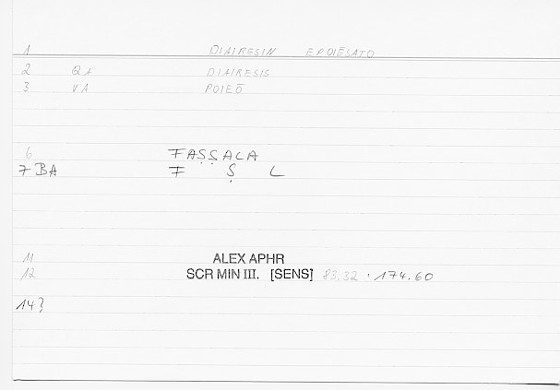 1 DIAIRESIN EPOIĒSATO
2 QA DIAIRESIS
3 VA POIEŌ
6 FAṢṢALA
7 BA F Ṣ L
11 ALEX APHR
12 SCR MIN III. [SENS] 83.32 · 174.60
14}